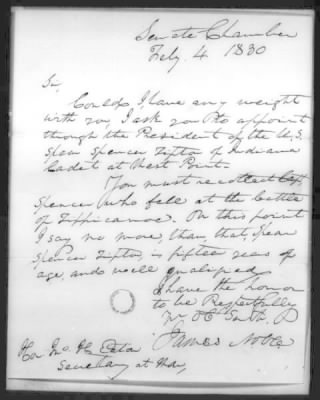 Senate Chamber
Feby. 4 1830
Sir,
Could I, have any weight
with you, I ask you to appoint
through the President of the U.S.
Spear Spencer Tipton of Indiana
Cadet at West Point.
You must recollect Capt.
Spencer who fell at the battle
of Tippicanoe. On this point
I say no more, than, that, Spear
Spencer Tipton, is fifteen years of
age, and well qualified,
I have the honor
to be Respectfully
Yr Ob Servt.
James Noble
Hon Jno. H. Eaton
Secretary at War,